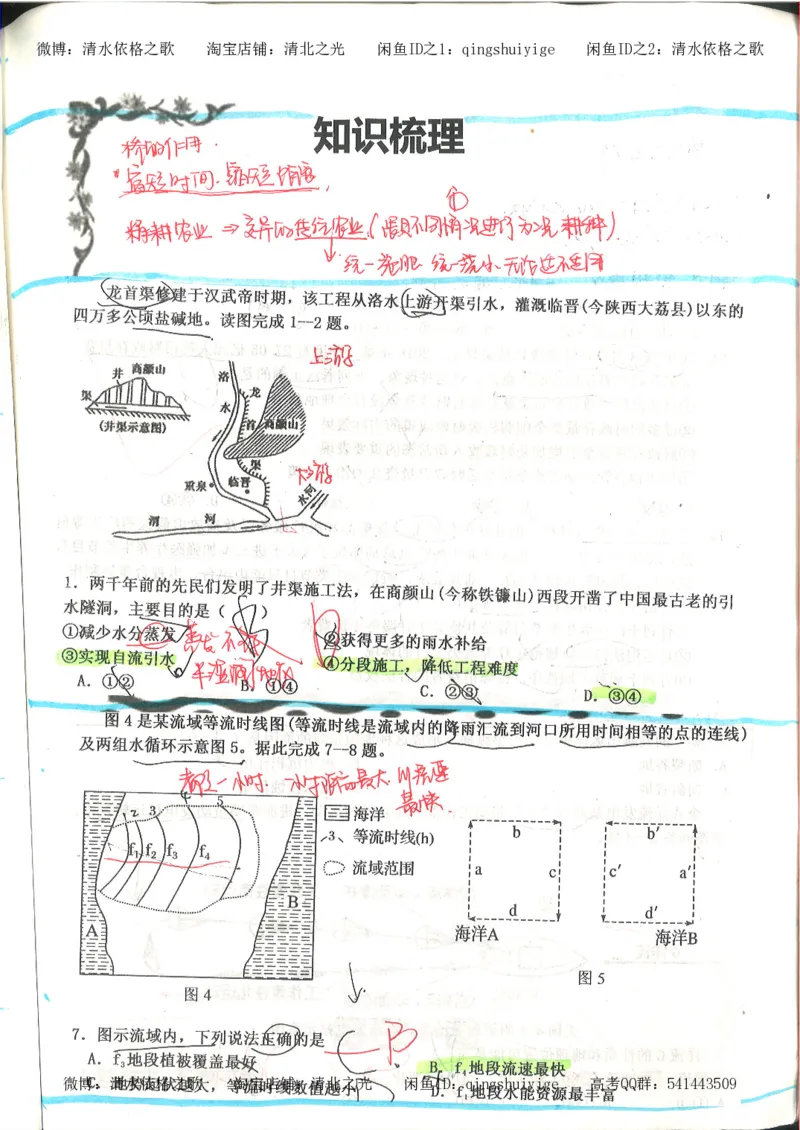 微博：清水依格之歌 淘宝店铺：清北之光 闲鱼ID之1：qingshuiyige 闲鱼ID之2：清水依格之歌
知识梳理
桥的作用.
缩短时间.缩短距离,
①
精耕农业 ⇒ 变异的传统农业
统一施肥 统一灌水 无作 这不适用
龙首渠修建于汉武帝时期，该工程从洛水上游开渠引水，灌溉临晋(今陕西大荔县)以东的
四万多公顷盐碱地。读图完成 1--2 题。
上游
井 商颜山
渠
(井渠示意图)
洛
水
龙
首
商颜山
渠
重泉
临晋
下游
河水
渭 河
1．两千年前的先民们发明了井渠施工法，在商颜山(今称铁镰山)西段开凿了中国最古老的引
水隧洞，主要目的是（ ）
①减少水分蒸发 ②获得更多的雨水补给
蒸发不强
③实现自流引水 ④分段施工，降低工程难度
半湿润地区
A．①② B．①④ C．②③ D．③④
图 4 是某流域等流时线图(等流时线是流域内的降雨汇流到河口所用时间相等的点的连线)
及两组水循环示意图 5。据此完成 7--8 题。
都是一小时.
最快
1 2 3 4 5
f₁ f₂ f₃ f₄
A
B
海洋
3、等流时线(h)
流域范围
b
a c
d
海洋A
b′
c′ a′
d′
海洋B
图 4
图 5
7．图示流域内，下列说法正确的是
B
A．f₃地段植被覆盖最好 B．f₄地段流速最快
C．地势起伏越大，等流时线数值越小 D．f₁地段水能资源最丰富
微博：清水依格之歌 淘宝店铺：清北之光 闲鱼ID：qingshuiyige 高考QQ群：541443509